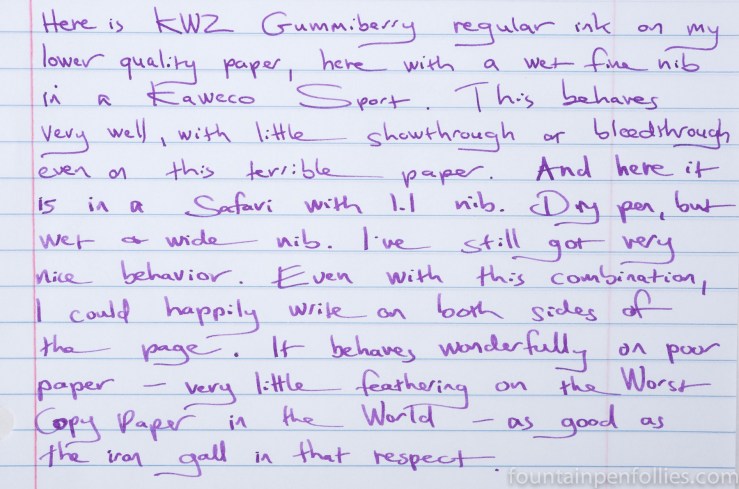 Here is KWZ Gummiberry regular ink on my
lower quality paper, here with a wet fine nib
in a Kaweco Sport. This behaves
very well, with little showthrough or bleedthrough
even on this terrible paper. And here it
is in a Safari with 1.1 nib. Dry pen, but
wet & wide nib. I've still got very
nice behavior. Even with this combination,
I could happily write on both sides of
the page. It behaves wonderfully on poor
paper – very little feathering on the Worst
Copy Paper in the World – as good as
the iron gall in that respect.
fountainpenfollies.com